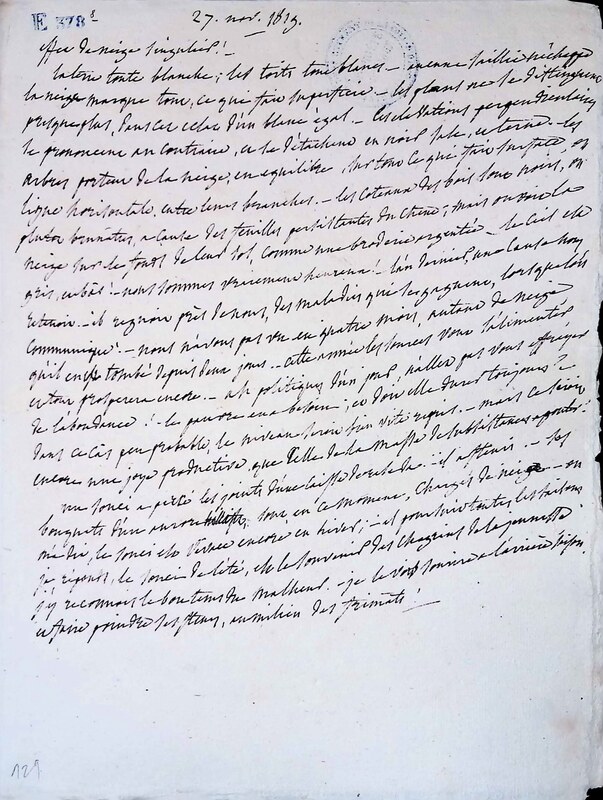 E 378 8
27. nov. 1819.
effet de neige singulier! –
la terre toute blanche; les toits tout blancs – aucune saillie n'échappe
la neige marque tout, ce qui fait superficie – les plans ne se distinguent
presque plus, dans cet éclat d'un blanc égal. – les élévations perpendiculaires
le prononcent au contraire, et se détachent en noir sale, et terne. – les
arbres portent de la neige, en équilibre, sur tout ce qui fait surface, ou
ligne horisontale, entre leurs branches. – les coteaux des bois sont noirs, ou
plutot brunâtres, a cause des feuilles persistantes du chene; mais on voit la
neige sur le fonds de leur sol, comme une broderie argentée. – le ciel est
gris, et bas! – nous sommes vraiement heureux! l'an dernier, une cause non
communiqué. – nous n'avons pas vu en quatre mois, autant de neige
qu'il en est tombé depuis deux jours. – cette année les sources vont s'alimenter
et tout prosperera encore. – ah politiques d'un jour, n'allez pas vous effrayer
de l'abondance! le pauvre en a besoin; et doit elle durer toujours?
dans ce cas peu probable, le niveau seroit bien vite repris. – mais ce seroit
encore une joye productive, que celle de la masse de subsistances ajoutée!
un souci a percé les joints d'une caisse
bouquets d'un aurore tout en ce moment, chargés de neige – on
m'a dit, le souci est encore en hiver; – et pour suivre toutes les saisons
je réponds, le souci de l'été, est le souvenir des chagrins de la jeunesse
j'y reconnais le bon tems du malheur. – je le vois sourire a l'arrière saison
et faire poindre ses fleurs, au milieu des frimats!
129